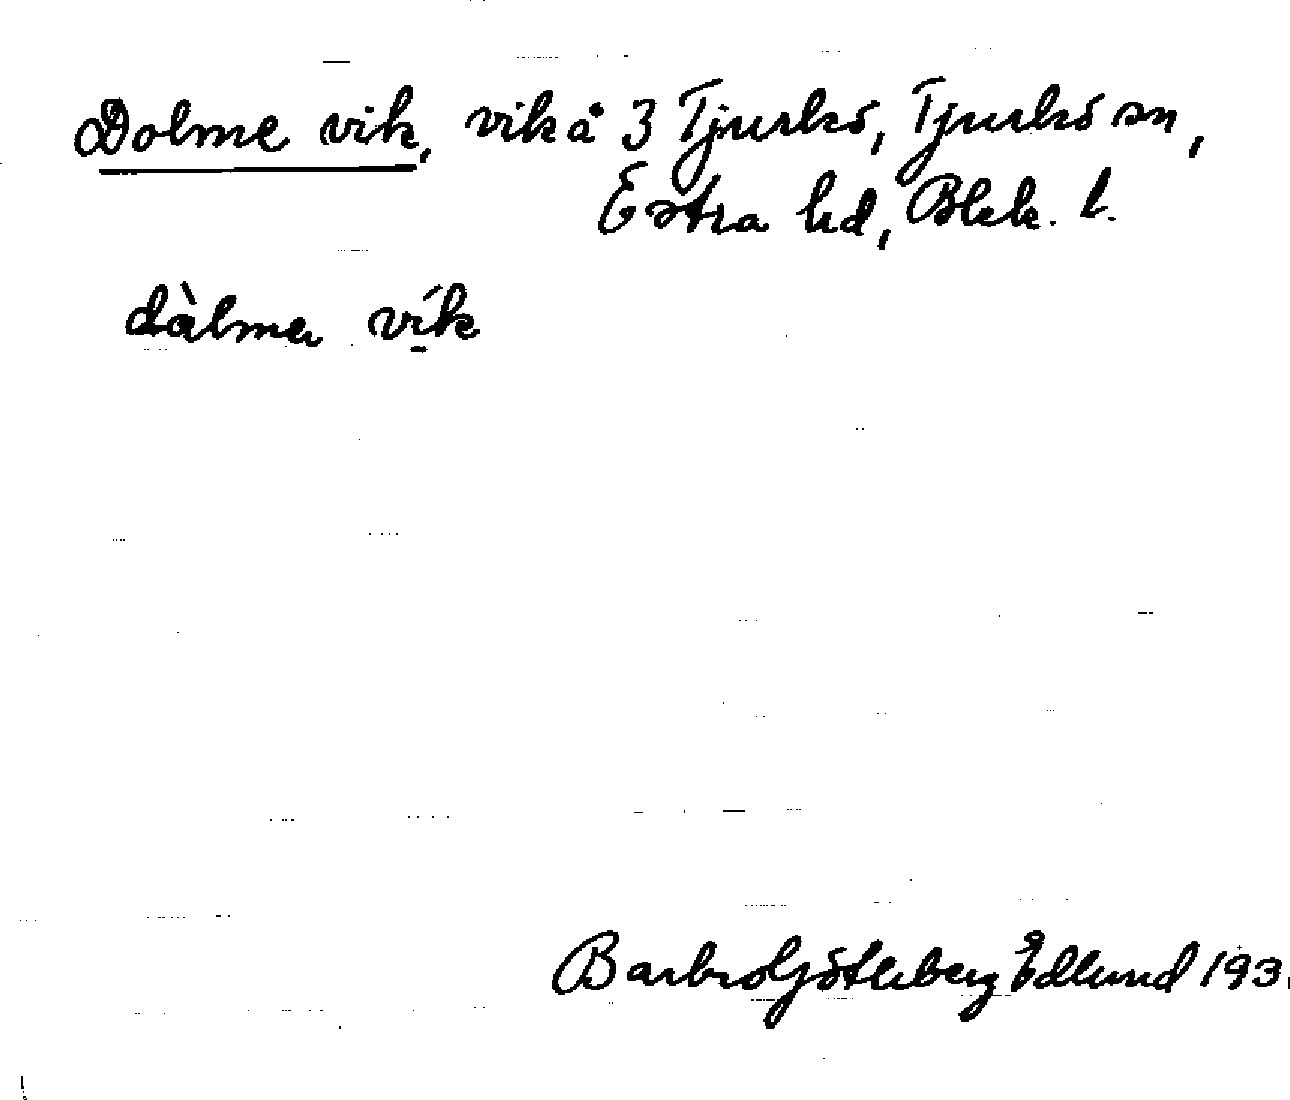 Dolme vik, vik å 3 Tjurkö, Tjurkö sn,
Östra hd, Blek. l.
dàlmer vík
Barbro Götleberg Edlund 193